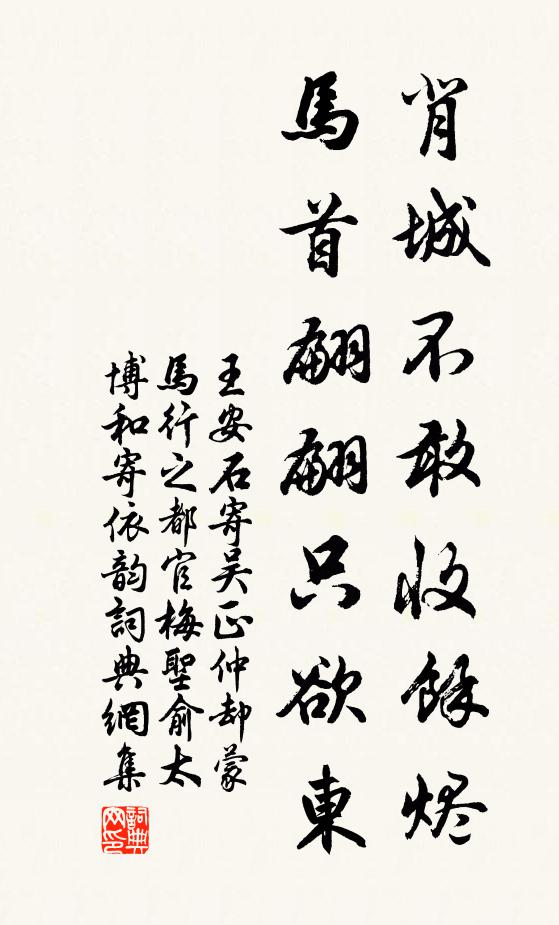 背城不敢收餘燼
馬首翩翩只欲東
王安石寄吴正仲却蒙
馬行之都官梅聖俞太
博和寄依韵詞典網集
詞典网印